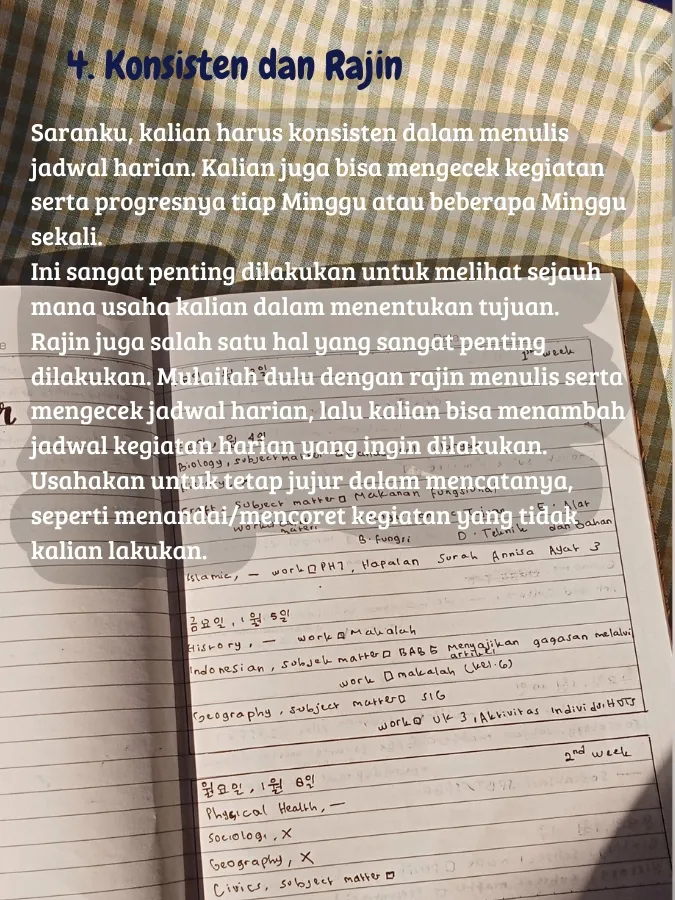 4. Konsisten dan Rajin
Saranku, kalian harus konsisten dalam menulis
jadwal harian. Kalian juga bisa mengecek kegiatan
serta progresnya tiap Minggu atau beberapa Minggu
sekali.
Ini sangat penting dilakukan untuk melihat sejauh
mana usaha kalian dalam menentukan tujuan.
Rajin juga salah satu hal yang sangat penting
dilakukan. Mulailah dulu dengan rajin menulis serta
mengecek jadwal harian, lalu kalian bisa menambah
jadwal kegiatan harian yang ingin dilakukan.
Usahakan untuk tetap jujur dalam mencatatnya,
seperti menandai/mencoret kegiatan yang tidak
kalian lakukan.
1st week
Biology, subject matter
subject matter □ Makanan Fungsional
B. Fungsi D. Teknik dan Bahan
Islamic, — work □ PH 1, Hapalan Surah Annisa Ayat 3
금요일, 1월 5일
History, — work □ Makalah
Indonesian, subjek matter □ BAB 5 menyajikan gagasan melalui
artikel
work □ makalah (kel. 6)
Geography, subject matter □ SIG
work □ UK 3, Aktivitas Individu, HOTS
2nd week
월요일, 1월 8일
Physical Health, —
Sociologi, X
Geography, X
Civics, subject matter □